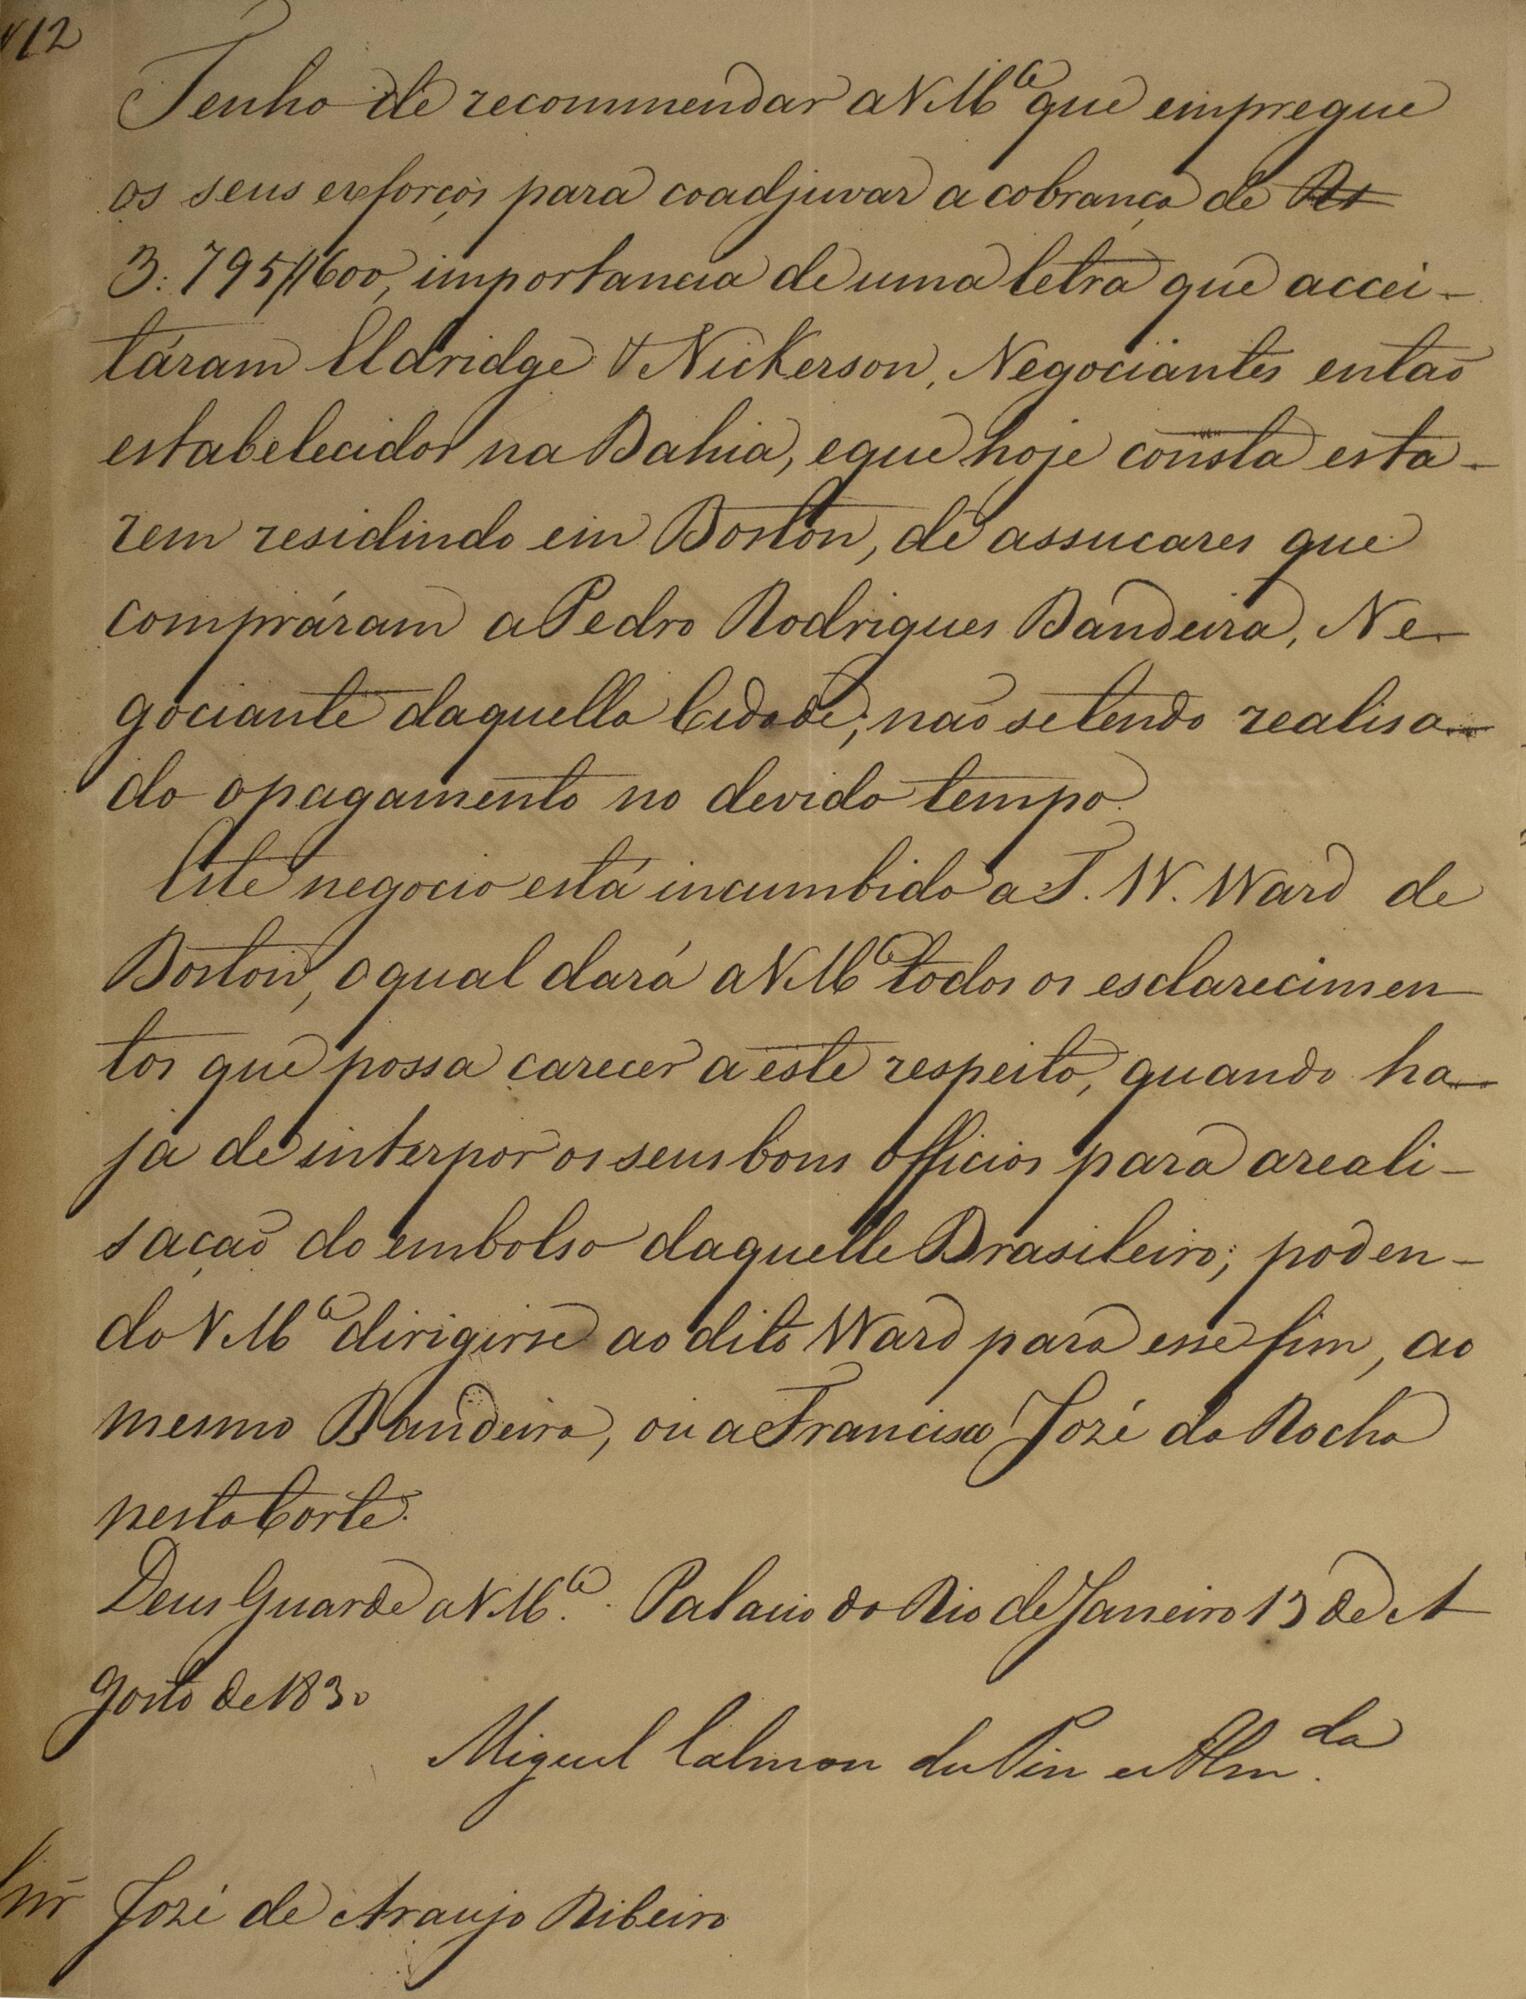 N 12
Tenho de recommendar a V M.ce que empregue
os seus exforços para coadjuvar a cobrança de Rs
3:795$600, importancia de uma letra que accei-
táram Eldridge & Nickerson, Negociantes então
estabelecidos na Bahia, e que hoje consta esta-
rem residindo em Boston, de assucares que
compráram a Pedro Rodrigues Bandeira, Ne-
gociante daquella Cidade; não se tendo realisa-
do o pagamento no devido tempo.
Este negocio está incumbido a T. W. Ward de
Boston, o qual dará a V M.ce todos os esclarecimen
tos que possa carecer a este respeito, quando ha-
ja de interpor os seus bons officios para a reali-
sação do embolso daquelle Brasileiro; poden-
do V M.ce dirigirse ao dito Ward para esse fim, ao
mesmo Bandeira, ou a Francisco Jozé da Rocha
nesta Corte.
Deus Guarde a V M.ce. Palacio do Rio de Janeiro 13 de A
gosto de 1830
Miguel Calmon du Pin e Alm.da
Snr Jozé de Araujo Ribeiro